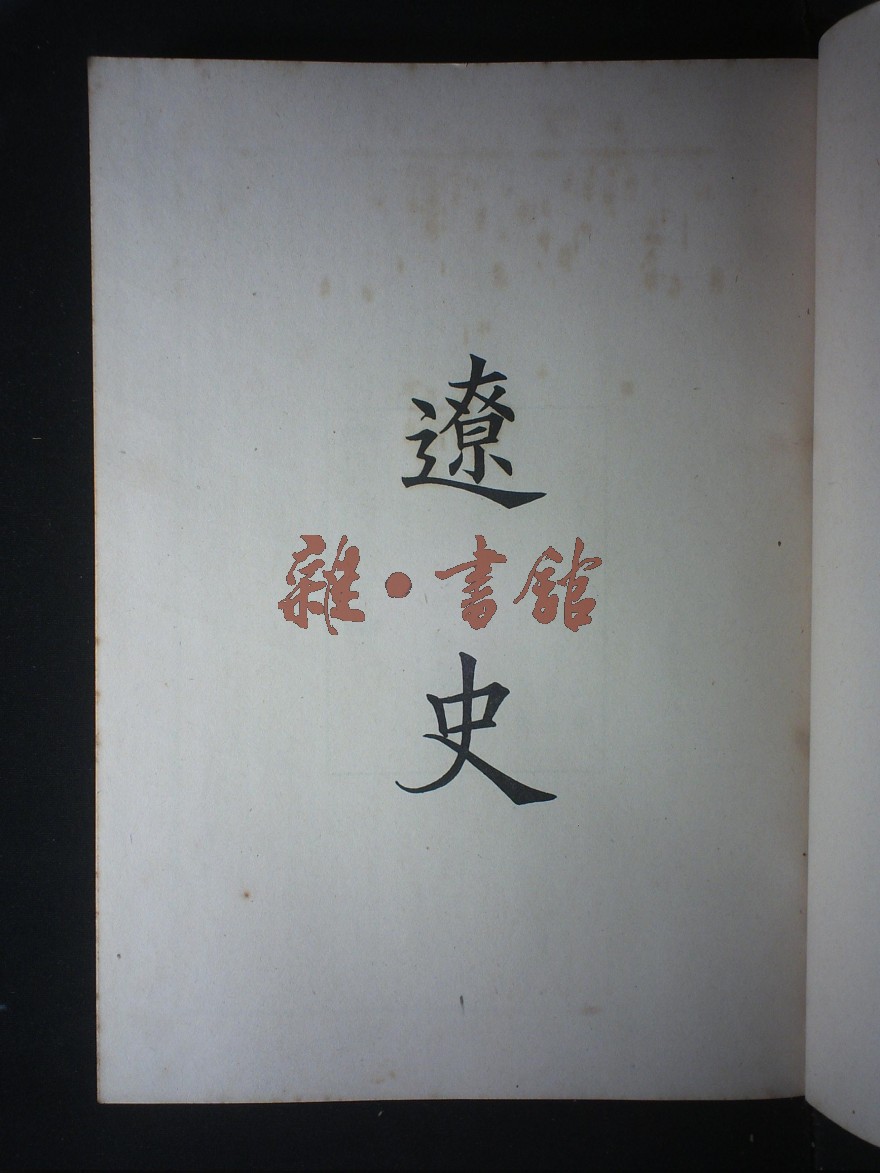 遼
雜·書館
史